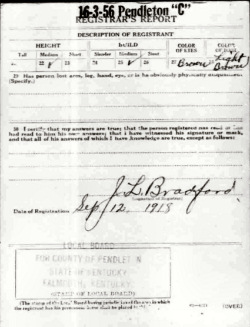 16-3-56 Pendleton "C"
REGISTRAR'S REPORT
DESCRIPTION OF REGISTRANT
HEIGHT BUILD COLOR OF EYES COLOR OF HAIR
Tall Medium Short Slender Medium Stout
21 22 ✓ 23 24 25 ✓ 26 27 Brown 28 Light Brown
29 Has person lost arm, leg, hand, eye, or is he obviously physically disqualified?
(Specify.)
30 I certify that my answers are true; that the person registered has read or has
had read to him his own answers; that I have witnessed his signature or mark,
and that all of his answers of which I have knowledge are true, except as follows:
J. L. Bradford
(Signature of Registrar)
Date of Registration Sep. 12, 1918
LOCAL BOARD
FOR COUNTY OF PENDLETON
STATE OF KENTUCKY
FALMOUTH, KENTUCKY
(STAMP OF LOCAL BOARD)
(The stamp of the Local Board having jurisdiction of the area in which
the registrant has his permanent home shall be placed in this box.)
(OVER)